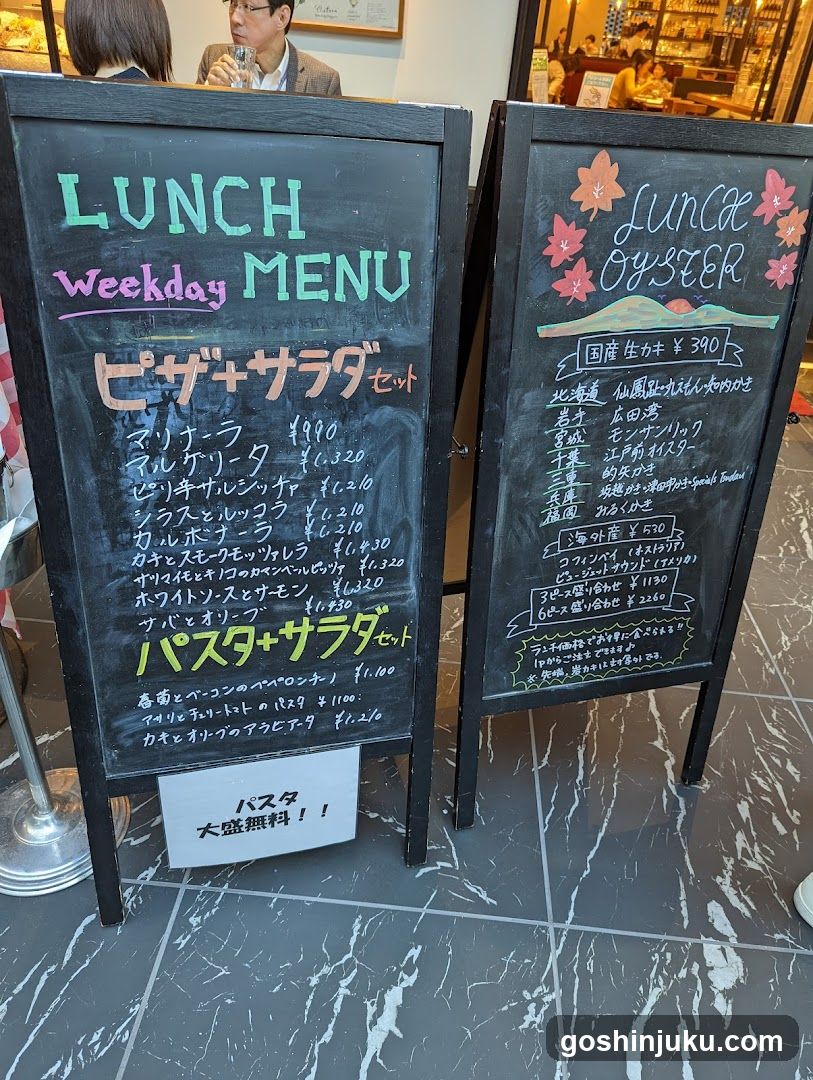 LUNCH
Weekday MENU
ピザ+サラダセット
マリナーラ ¥990
マルゲリータ ¥1,320
ピリ辛サルシッチャ ¥1,210
シラスとルッコラ ¥1,210
カルボナーラ ¥1,210
カキとスモークモッツァレラ ¥1,430
サツマイモとキノコのカマンベールピッツァ ¥1,320
ホワイトソースとサーモン ¥1,320
サバとオリーブ ¥1,430
パスタ+サラダセット
春菊とベーコンのペペロンチーノ ¥1,100
アサリとチェリートマトのパスタ ¥1100
カキとオリーブのアラビアータ ¥1,210
パスタ
大盛無料!!
LUNCH
OYSTER
国産生カキ ¥390
北海道 仙鳳趾・九えもん・知内かき
岩手 広田湾
宮城 モンサンリック
千葉 江戸前オイスター
三重 的矢かき
兵庫 坂越かき
福岡 みるくがき
海外産 ¥530
コフィンベイ (オストラリア)
ピュージェットサウンド (アメリカ)
3ピース盛り合わせ ¥1130
6ピース盛り合わせ ¥2260
ランチ価格でお得に食べられる!!
1Pからご注文できます♪
goshinjuku.com